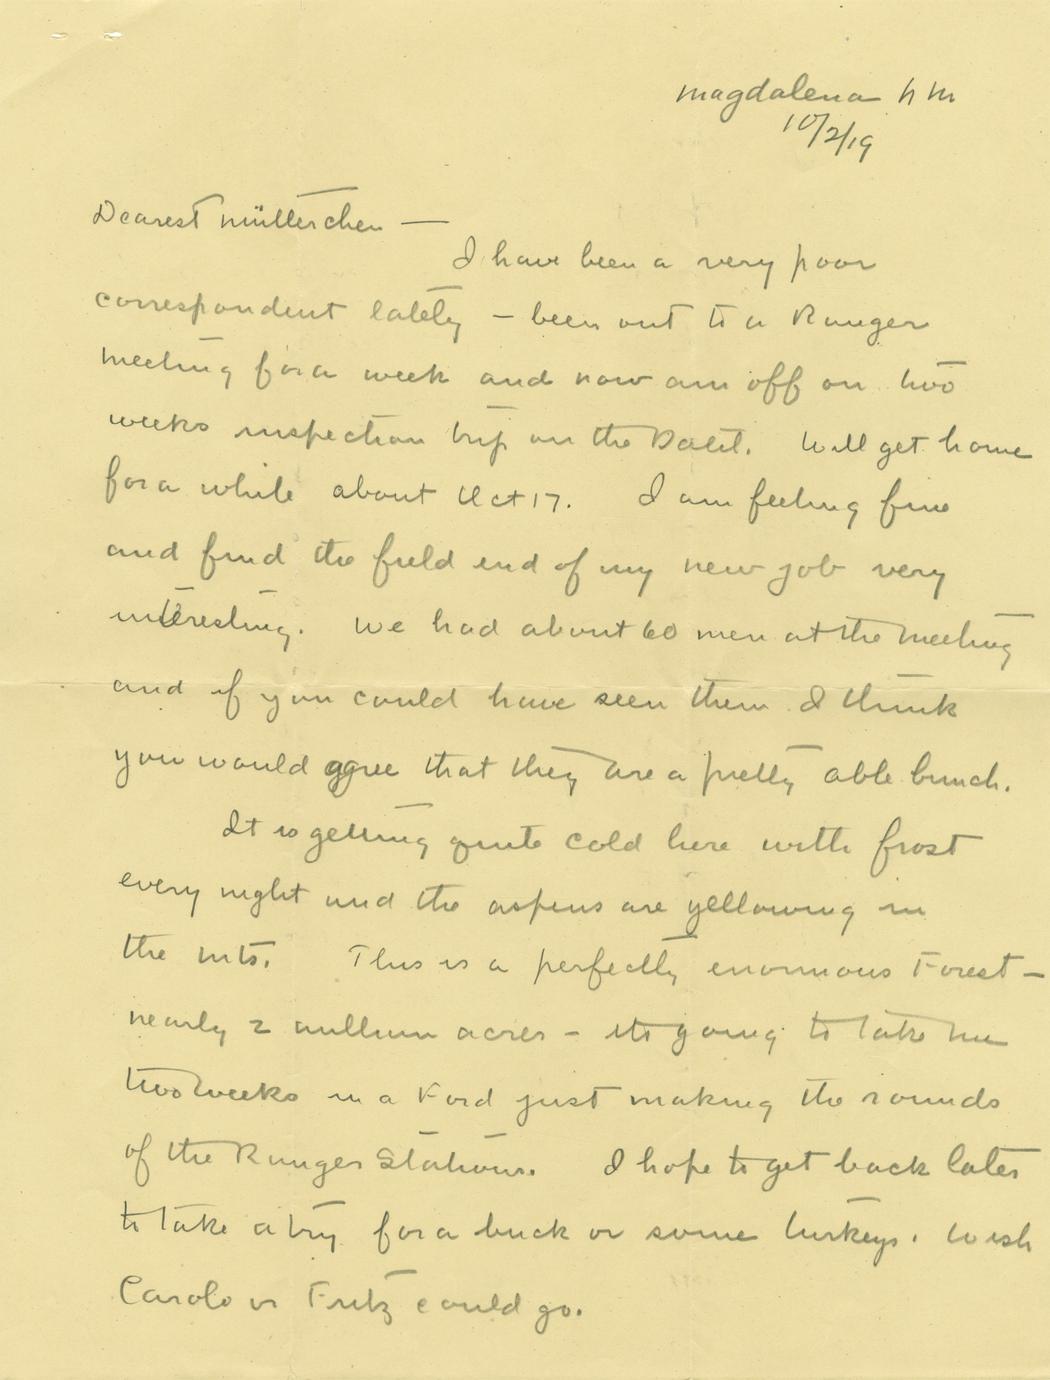 Magdalena N M
10/2/19
Dearest Mütterchen —
I have been a very poor
correspondent lately – been out to a Ranger
meeting for a week and now am off on two
weeks inspection trip on the Datil. Will get home
for a while about Oct 17. I am feeling fine
and find the field end of my new job very
interesting. We had about 60 men at the meeting
and if you could have seen them I think
you would agree that they are a pretty able bunch.
It is getting quite cold here with frost
every night and the aspens are yellowing in
the mts. This is a perfectly enormous Forest –
nearly 2 million acres – its going to take me
two weeks in a Ford just making the rounds
of the Ranger Stations. I hope to get back later
to take a try for a buck or some turkeys. Wish
Carolo or Fritz could go.